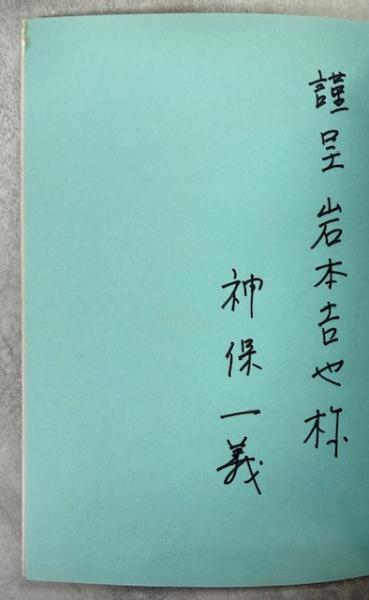 謹呈 岩本吉也様
神保一義